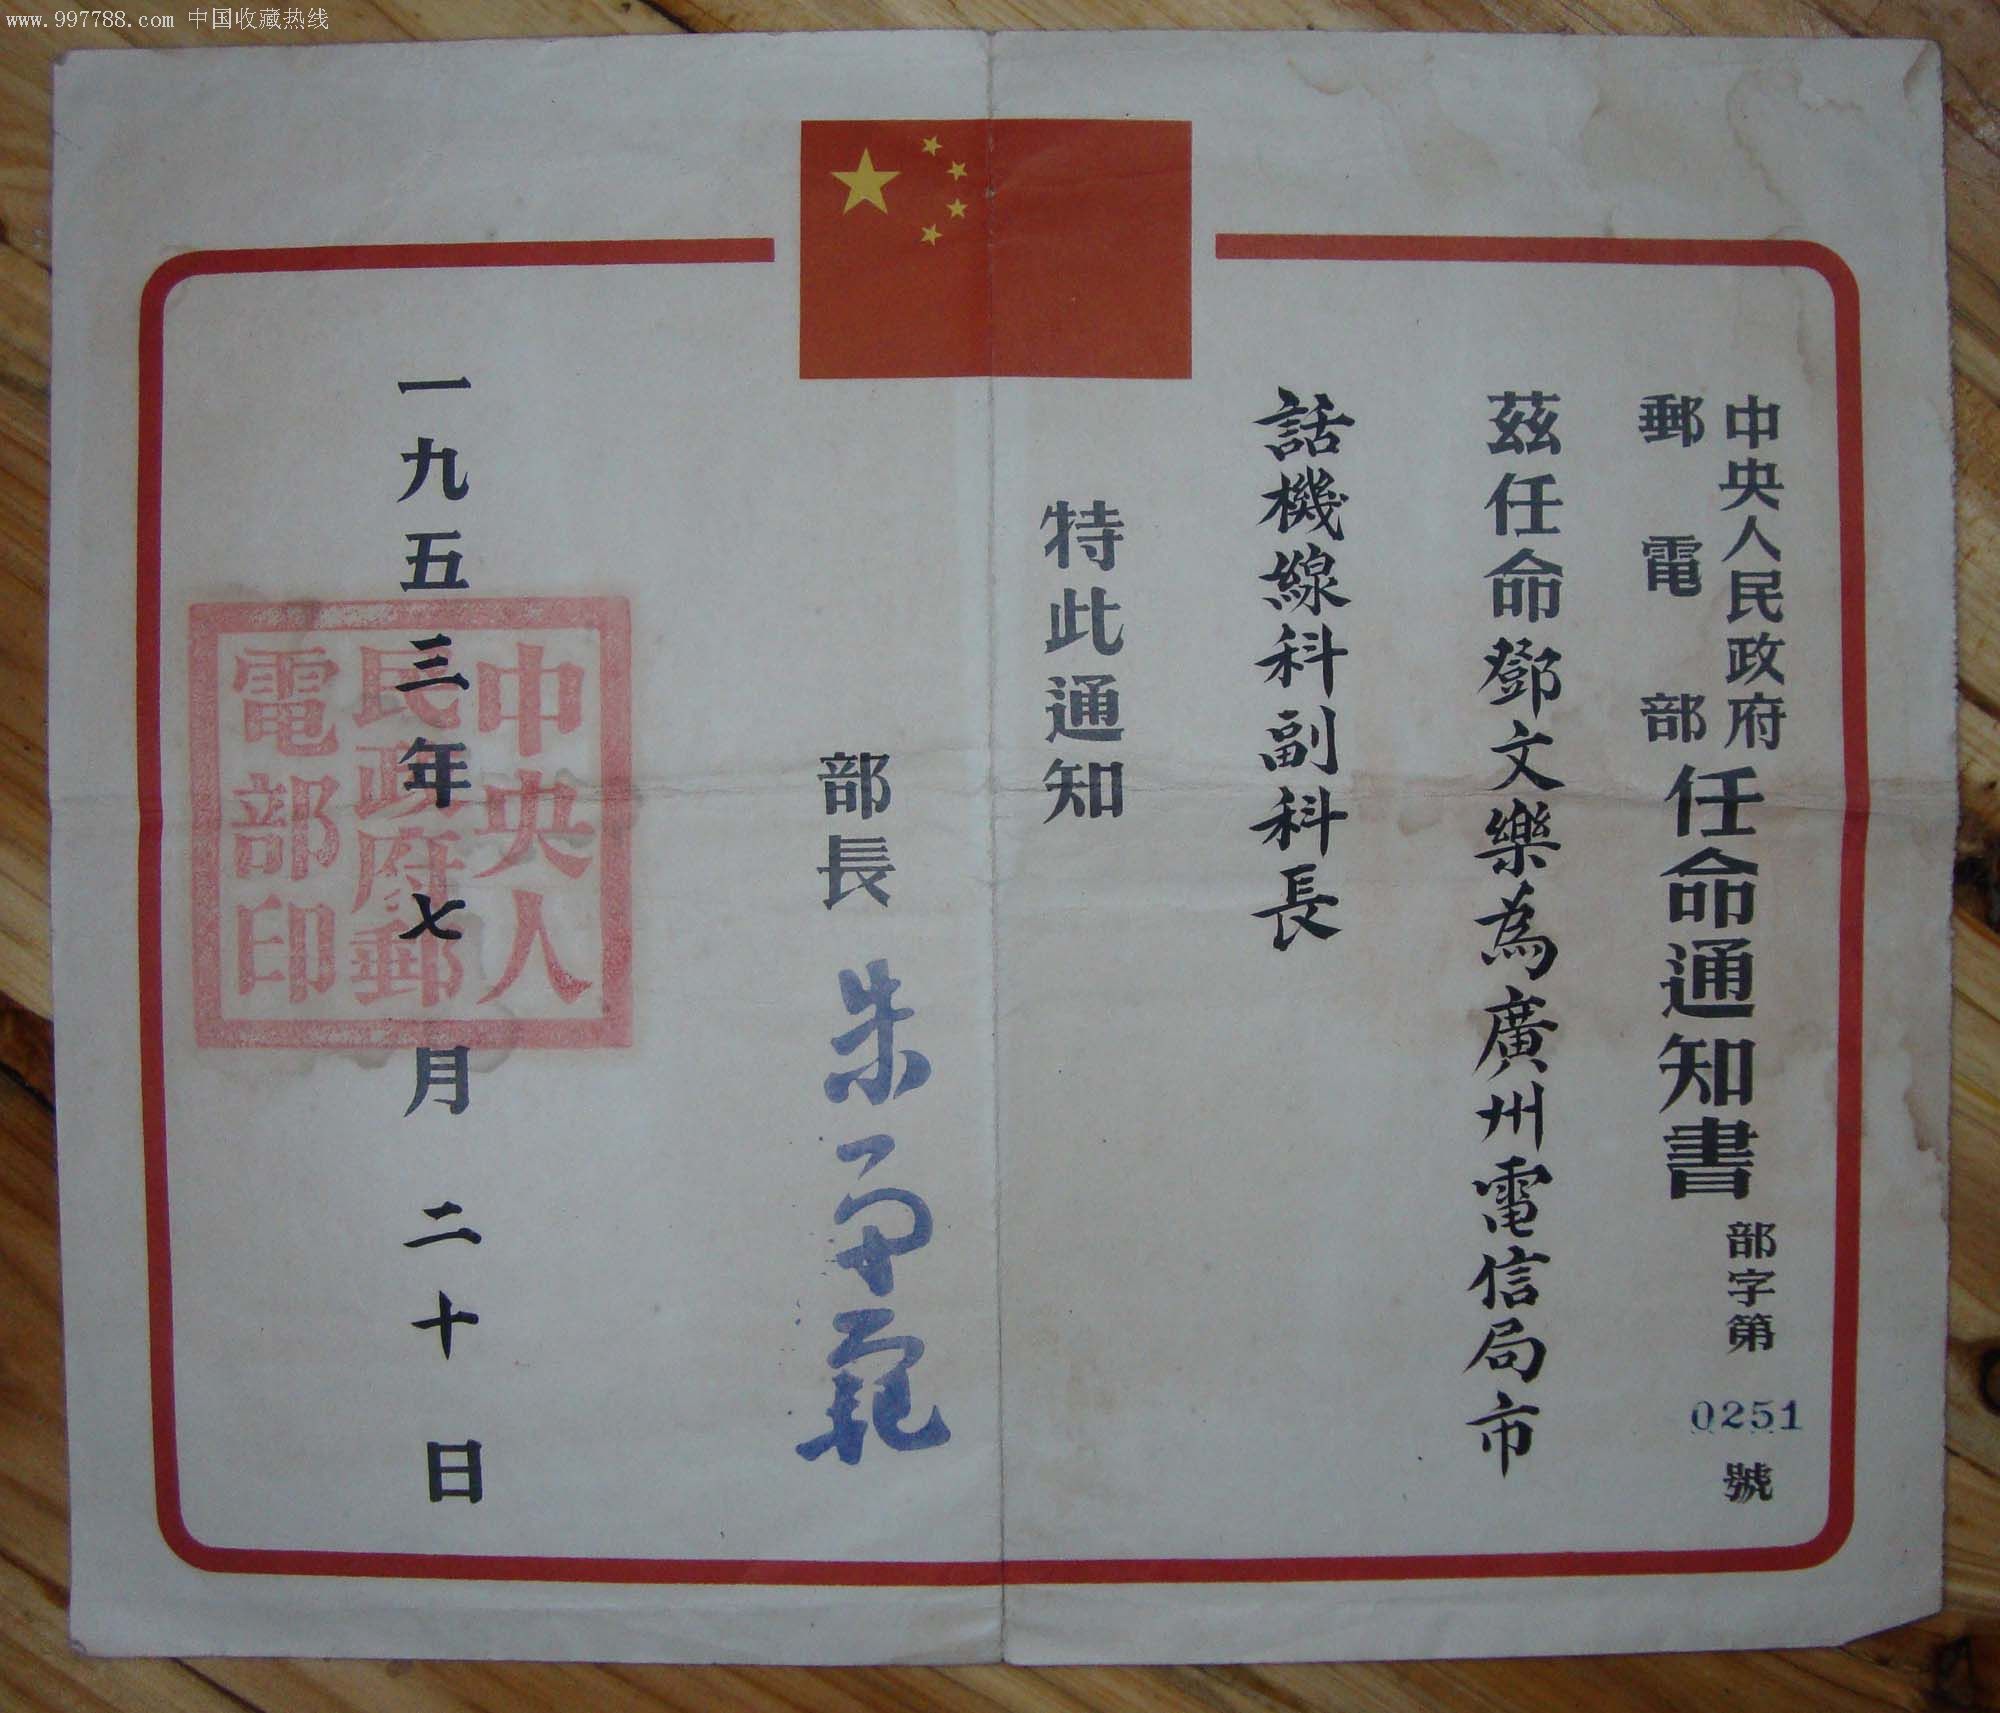 www.997788.com 中国收藏热线
中央人民政府
郵電部
任命通知書
部字第0251號
茲任命鄧文樂為廣州電信局市
話機線科副科長
特此通知
部長 朱學範
一九五三年七月二十日
中央人
民政府郵
電部印